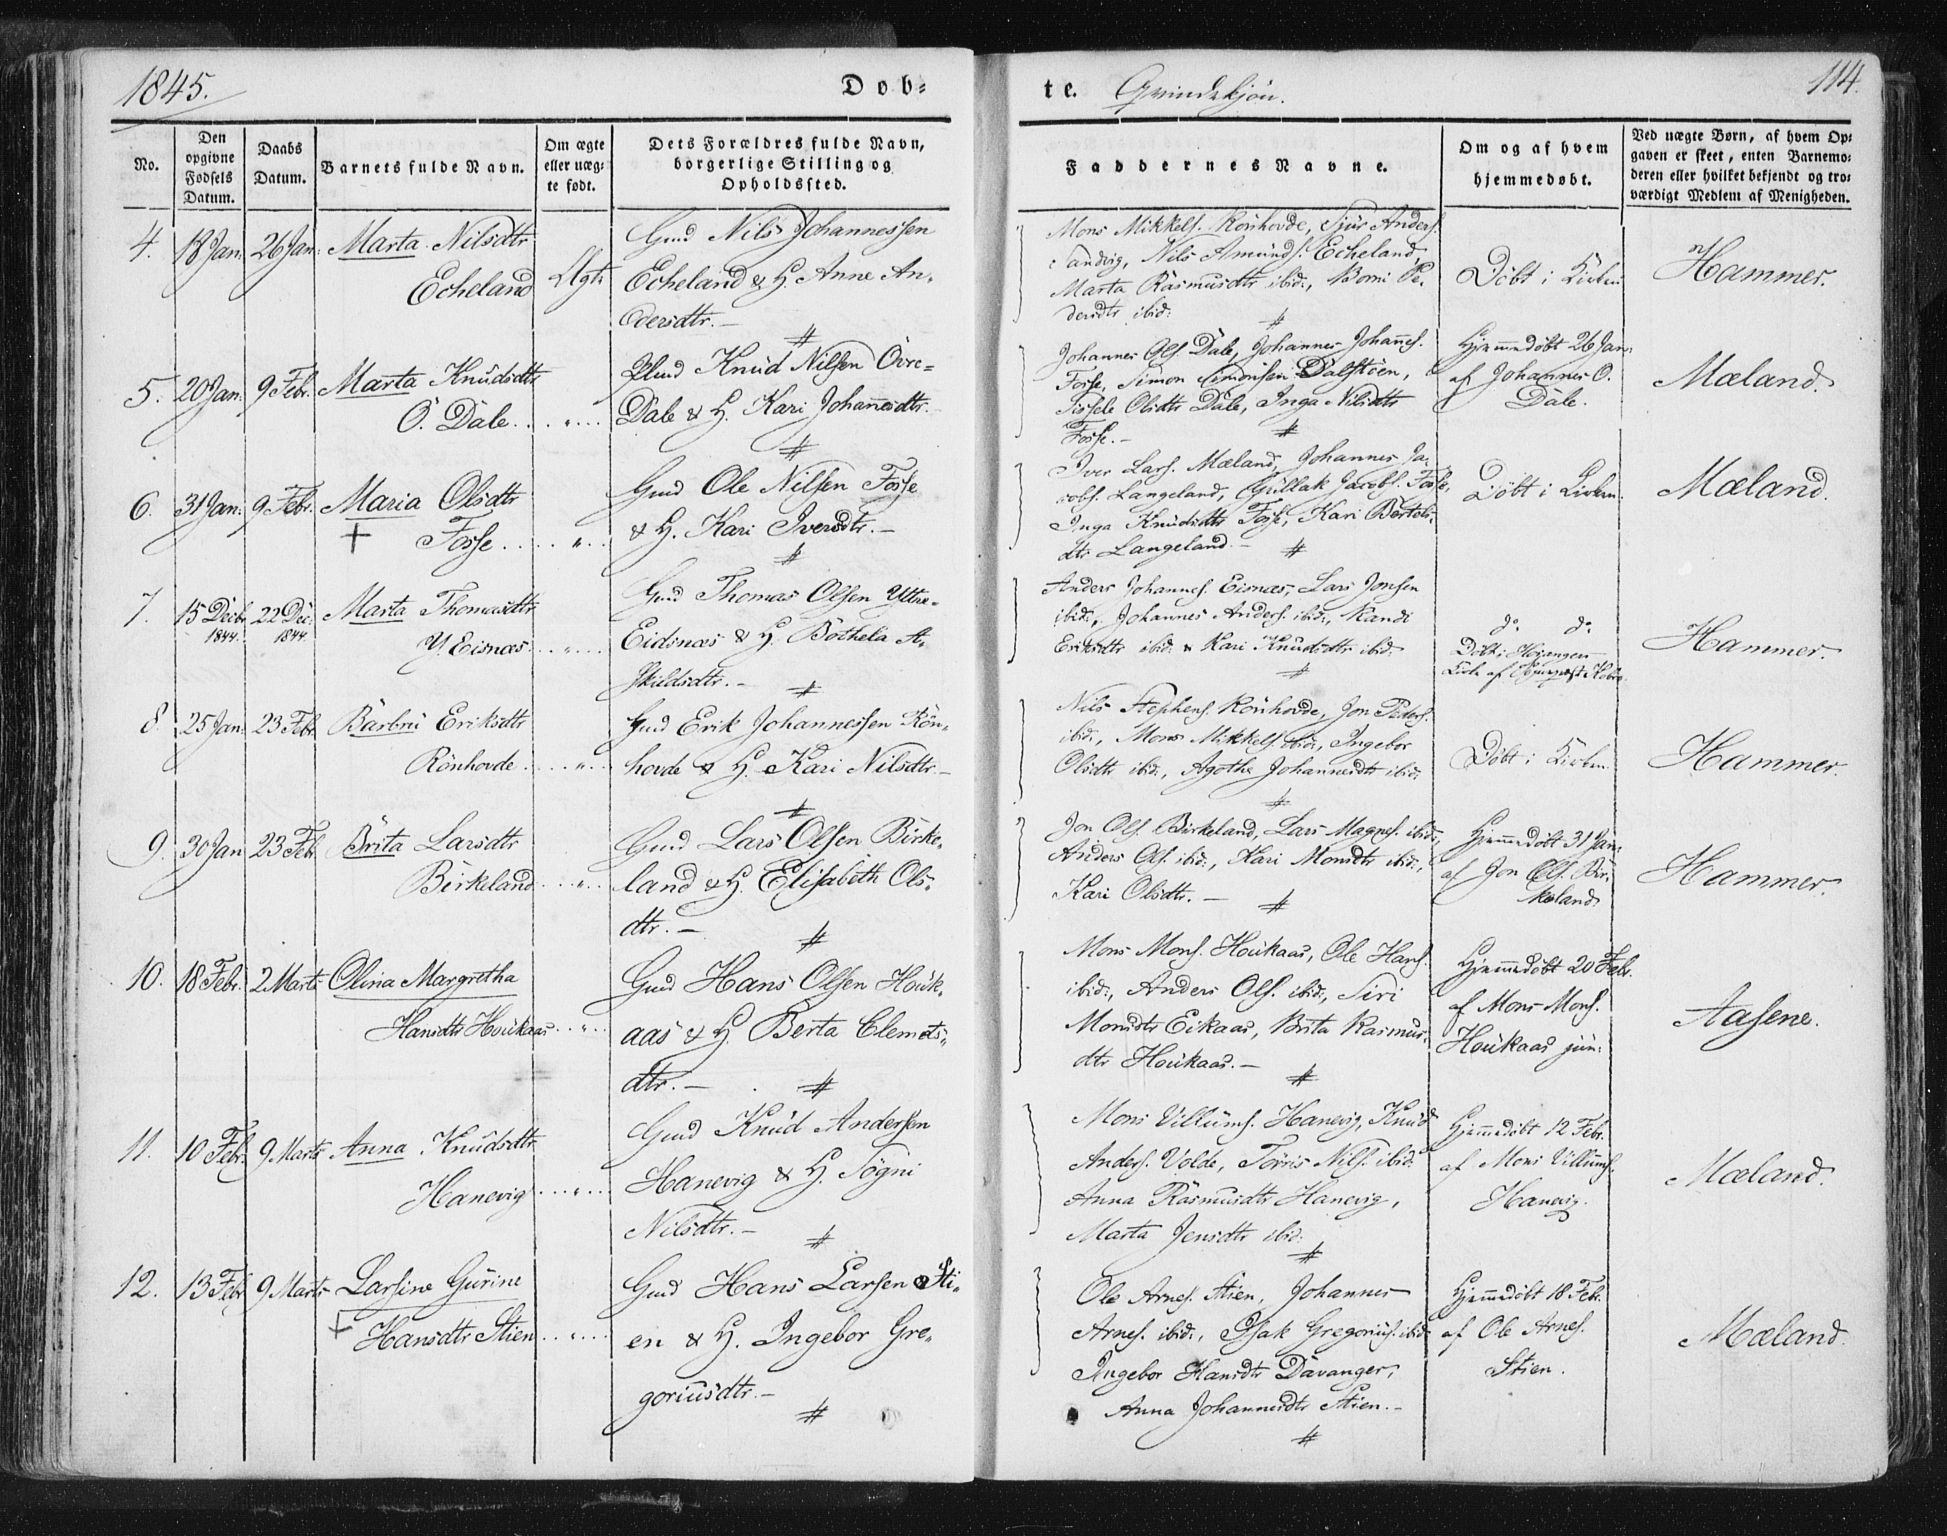 1845.
Döb=
te. Qvindekjön.
114.
No.
Den opgivne Fødsels Datum.
Daabs Datum.
Barnets fulde Navn.
Om ægte eller uæg= te født.
Dets Forældres fulde Navn, borgerlige Stilling og Opholdssted.
Faddernes Navne.
Om og af hvem hjemmedøbt.
Ved uægte Børn, af hvem Op= gaven er skeet, enten Barnemo= deren eller hvilket bekjendt og tro= værdigt Medlem af Menigheden.
4. 18 Jan: 26 Jan: Marta Nilsdtr
Echeland Ægte
Gmd Nils Johannessen
Echeland & H. Anne An„
dersdtr.–
Mons Mikkels. Rönhovde, Sjur Anders.
Sandvig, Nils Amunds. Echeland,
Marta Rasmusdtr ibid:, Borni Pe„
dersdtr ibid:
Döbt i Kirken
Hammer.
5. 20 Jan: 9 Febr. Marta Knudsdtr
Ö. Dale . . „ . .
Knud Nilsen Övre=
Dale & H. Kari Johannesdtr.
Johannes Ols. Dale, Johannes Johannes.
Fosse, Simon Simonsen Dalstöen,
Sissele Olsdtr Dale, Inga Nilsdtr
Fosse.–
Hjemmedöbt 26 Jan:
af Johannes O.
Dale.
Mæland
6. 31 Jan: 9 Febr. Maria Olsdtr
+ Fosse . . „ . .
Gmd Ole Nilsen Fosse
& H. Kari Iversdtr.–
Iver Lars. Mæland, Johannes Ja„
cobs. Langeland, Gullak Jacobs. Fosse,
Inga Knudsdtr Fosse, Kari Bertels„
dtr Langeland.–
Döbt i Kirken.
Mæland.
7. 15 Decbr 1844. 22 Dec: 1844. Marta Thomasdtr
Y. Eisnæs . . „ . .
Gmd Thomas Olsen Yttre„
Eidsnæs & H. Bothela A„
skildsdtr.–
Anders Johannes. Eisnæs, Lars Jonsen
ibid:, Johannes Anders. ibid:, Randi
Eriksdtr ibid: & Kari Knudsdtr ibid:
do do
Döbt i
Kirke af
Hammer.
8. 25 Jan: 23 Febr Barbru Eriksdtr
Rönhovde . . „ . .
Gmd Erik Johannessen Rön„
hovde & H. Kari Nilsdtr.–
Nils Stephens. Rönhovde, Jon Peders.
ibid:, Mons Mikkels. ibid:, Ingebor
Olsdtr ibid:, Agothe Johannesdtr ibid:
Döbt i Kirken.
Hammer.
9. 30 Jan 23 Feb. Brita Larsdtr
Birkeland . . „ . .
Gmd Lars Olsen Birke„
land & H. Elisabeth Ols„
dtr.–
Jon Ols. Birkeland, Lars Magnes. ibid:,
Anders Ols. ibid:, Kari Monsdtr ibid:,
Kari Olsdtr.–
Hjemmedöbt 31 Jan:
af Jon Ols. Bir„
keland
Hammer.
10. 18 Febr. 2 Marts Olina Margretha
Hansdtr Houkaas . . „ . .
Gmd Hans Olsen Houk„
aas & H. Berta Clemets„
dtr.–
Mons Mons. Houkaas, Ole Hans.
ibid:, Anders Ols. ibid:, Siri
Monsdtr Eikaas, Brita Rasmus„
dtr Houkaas.–
Hjemmedöbt 20 Febr.
af Mons Mons.
Houkaas jun:
Aasene.
11. 10 Febr. 9 Marts Anna Knudsdtr
Hanevig . . „ . .
Gmd Knud Andersen
Hanevig & H. Sögni
Nilsdtr.–
Mons Villums. Hanevig, Knud
Anders. Volde, Torris Nils. ibid:
Anna Rasmusdtr Hanevig,
Marta Jensdtr ibid:
Hjemmedöbt 12 Febr.
af Mons Villums.
Hanevig.
Mæland.
12. 13 Febr 9 Marts Larsine Gurine
+ Hansdtr Stien . . „ . .
Gmd Hans Larsen Sti„
en & H. Ingebor Gre„
goriusdtr.–
Ole Arnes. Stien, Johannes
Arnes. ibid:, Isak Gregorius. ibid:
Ingebor Hansdtr Davanger,
Anna Johannesdtr Stien.–
Hjemmedöbt 18 Febr.
af Ole Arnes.
Stien.
Mæland.